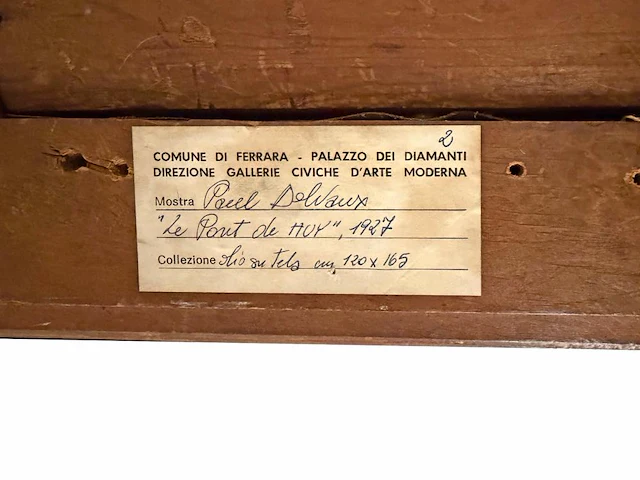 2
COMUNE DI FERRARA - PALAZZO DEI DIAMANTI
DIREZIONE GALLERIE CIVICHE D'ARTE MODERNA
Mostra Paul Delvaux
"Le Pont de HUY", 1927
Collezione olio su tela cm. 120 x 165